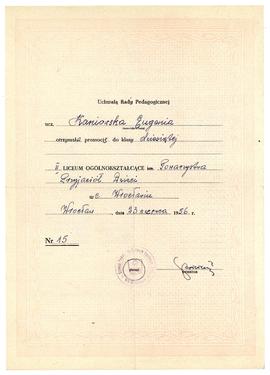 Uchwałą Rady Pedagogicznej
ucz. Kaniorska Eugenia
otrzymał promocję do klasy dziesiątej
II. LICEUM OGÓLNOKSZTAŁCĄCE im. Towarzystwa
Przyjaciół Dzieci
w e Wrocławiu
Wrocław, dnia 23 czerwca 1956 r.
Nr 15